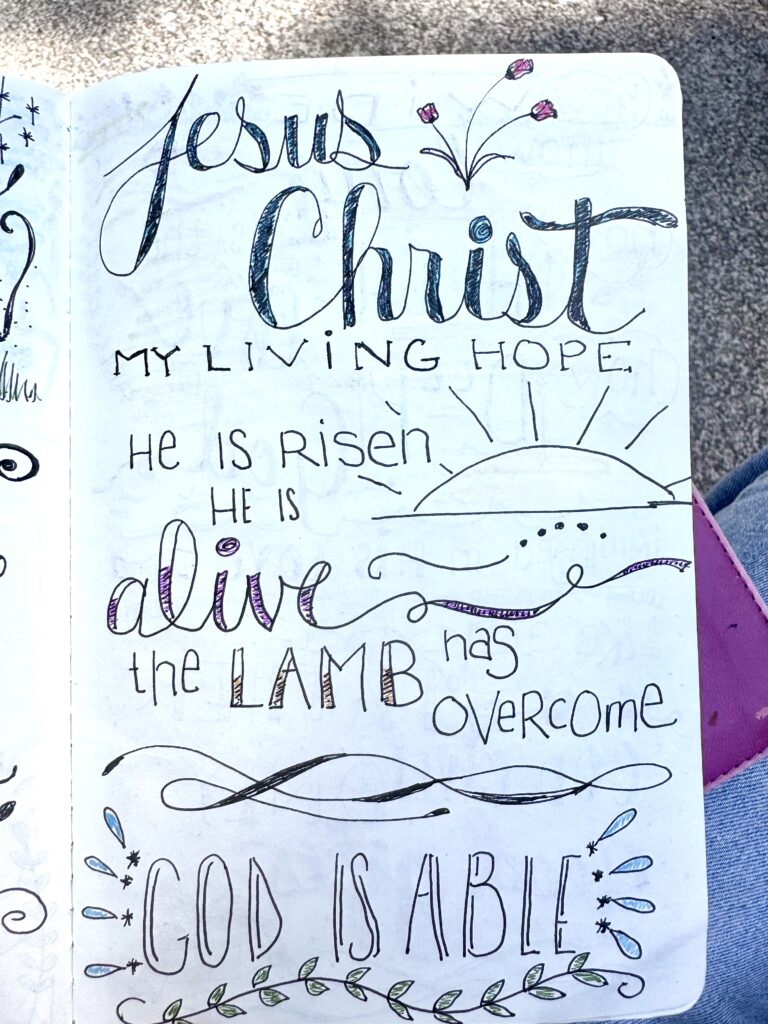 Jesus
Christ
MY LIViNG HOPE.
He IS Risen
HE IS
alive
the LAMB has
OVeRcome
GOD IS ABLE